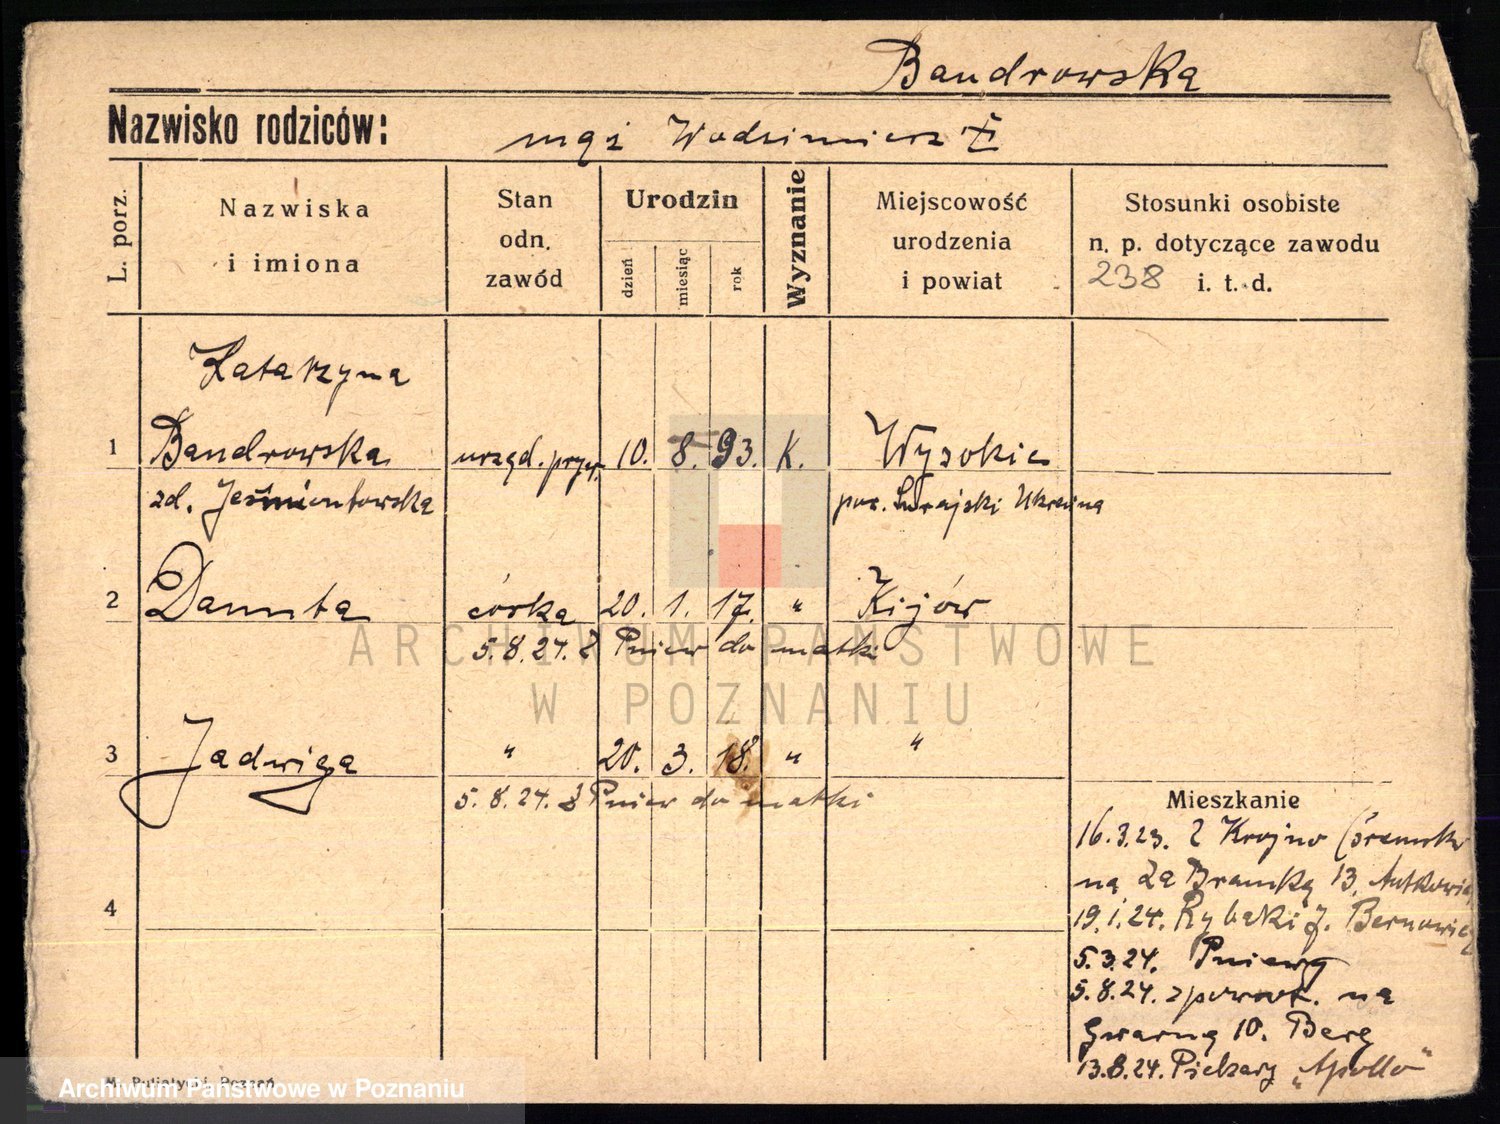 Bandrowska
Nazwisko rodziców: mąż Wodzimierz
L. porz.
Nazwiska i imiona
Stan odn. zawód
Urodzin
dzień
miesiąc
rok
Wyznanie
Miejscowość urodzenia i powiat
Stosunki osobiste n. p. dotyczące zawodu i. t. d.
238
Katarzyna
1 Bandrowska urzęd. pryw. 10. 8. 93. K. Wysokie
zd. Jeśmiontowska pow. Ukraina
2 Danuta córka 20. 1. 17. " Kijów
5. 8. 24. z Pniew do matki
ARCHIWUM PAŃSTWOWE
W POZNANIU
3 Jadwiga " 20. 3. 18. " "
5. 8. 24. z Pniew do matki
Mieszkanie
16.3.23. z Krajno
na Za Bramką 13,
4
19.1.24. Rybaki 7.
5.3.24. Pniewy
5.8.24. zpowrot. na
Gwarną 10. Berg
13.8.24. Piekary „Apollo"
Archiwum Państwowe w Poznaniu